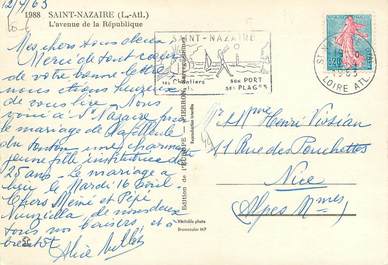 12/4/63
1988 SAINT-NAZAIRE (L.-Atl.)
L'avenue de la République
Mes chers tous deux
Merci de tout cœur
de votre bonne lettre,
nous heureux
de vous lire. Nous
à St Nazaire pour
le mariage de
du une charmante
jeune fille institutrice de
25 ans. Le mariage a
lieu le Mardi 16 Avril.
Chers Mémé et Pépé
de nous deux
nos baisers, et a
bientôt
Alice
Edition de l'EUROPE - PIERON
Reproduction interdite
Véritable photo
Bromocolor MP
SAINT-NAZAIRE
ses Chantiers
son PORT
ses PLAGES
LOIRE ATL.
0,20
Mr & Mme Henri Vissian
11 Rue des Ponchettes
Nice
Alpes Mmes